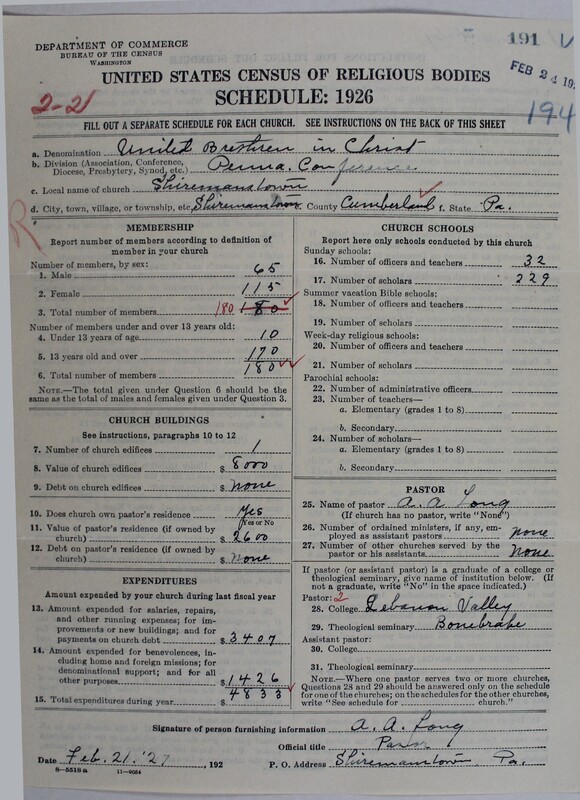 DEPARTMENT OF COMMERCE
BUREAU OF THE CENSUS
WASHINGTON
191 V
FEB 24 19
194
UNITED STATES CENSUS OF RELIGIOUS BODIES
SCHEDULE: 1926
2-21
FILL OUT A SEPARATE SCHEDULE FOR EACH CHURCH. SEE INSTRUCTIONS ON THE BACK OF THIS SHEET
a. Denomination United Brethren in Christ
b. Division (Association, Conference, Diocese, Presbytery, Synod, etc.) Penna. Conference
c. Local name of church Shiremanstown
d. City, town, village, or township, etc. Shiremanstown County Cumberland f. State Pa.
R
MEMBERSHIP
Report number of members according to definition of
member in your church
Number of members, by sex:
1. Male 65
2. Female 115
3. Total number of members 180 180
Number of members under and over 13 years old:
4. Under 13 years of age 10
5. 13 years old and over 170
6. Total number of members 180
NOTE.—The total given under Question 6 should be
same as the total of males and females given under Question 3.
CHURCH BUILDINGS
See instructions, paragraphs 10 to 12
7. Number of church edifices 1
8. Value of church edifices $ 8000
9. Debt on church edifices $ None
10. Does church own pastor's residence Yes
Yes or No
11. Value of pastor's residence (if owned by
church) $ 2600
12. Debt on pastor's residence (if owned by
church) $ None
EXPENDITURES
Amount expended by your church during last fiscal year
13. Amount expended for salaries, repairs,
and other running expenses; for im-
provements or new buildings; and for
payments on church debt $ 3407
14. Amount expended for benevolences, in-
cluding home and foreign missions; for
denominational support; and for all
other purposes $ 1426
15. Total expenditures during year $ 4833
CHURCH SCHOOLS
Report here only schools conducted by this church
Sunday schools:
16. Number of officers and teachers 32
17. Number of scholars 229
Summer vacation Bible schools:
18. Number of officers and teachers
19. Number of scholars
Week-day religious schools:
20. Number of officers and teachers
21. Number of scholars
Parochial schools:
22. Number of administrative officers
23. Number of teachers—
a. Elementary (grades 1 to 8)
b. Secondary
24. Number of scholars—
a. Elementary (grades 1 to 8)
b. Secondary
PASTOR
25. Name of pastor A. A. Long
(If church has no pastor, write "None")
26. Number of ordained ministers, if any, em-
ployed as assistant pastors None
27. Number of other churches served by the
pastor or his assistants None
If pastor (or assistant pastor) is a graduate of a college or
theological seminary, give name of institution below. (If
not a graduate, write "No" in the space indicated.)
Pastor: 2
28. College Lebanon Valley
29. Theological seminary Bonebrake
Assistant pastor:
30. College
31. Theological seminary
NOTE.—Where one pastor serves two or more churches,
Questions 28 and 29 should be answered only on the schedule
for one of the churches; on the schedules for the other churches,
write "See schedule for ____ church."
Signature of person furnishing information A. A. Long
Official title Parson
Date Feb. 21. '27, 192 P. O. Address Shiremanstown Pa.
8—5518 a 11—9064